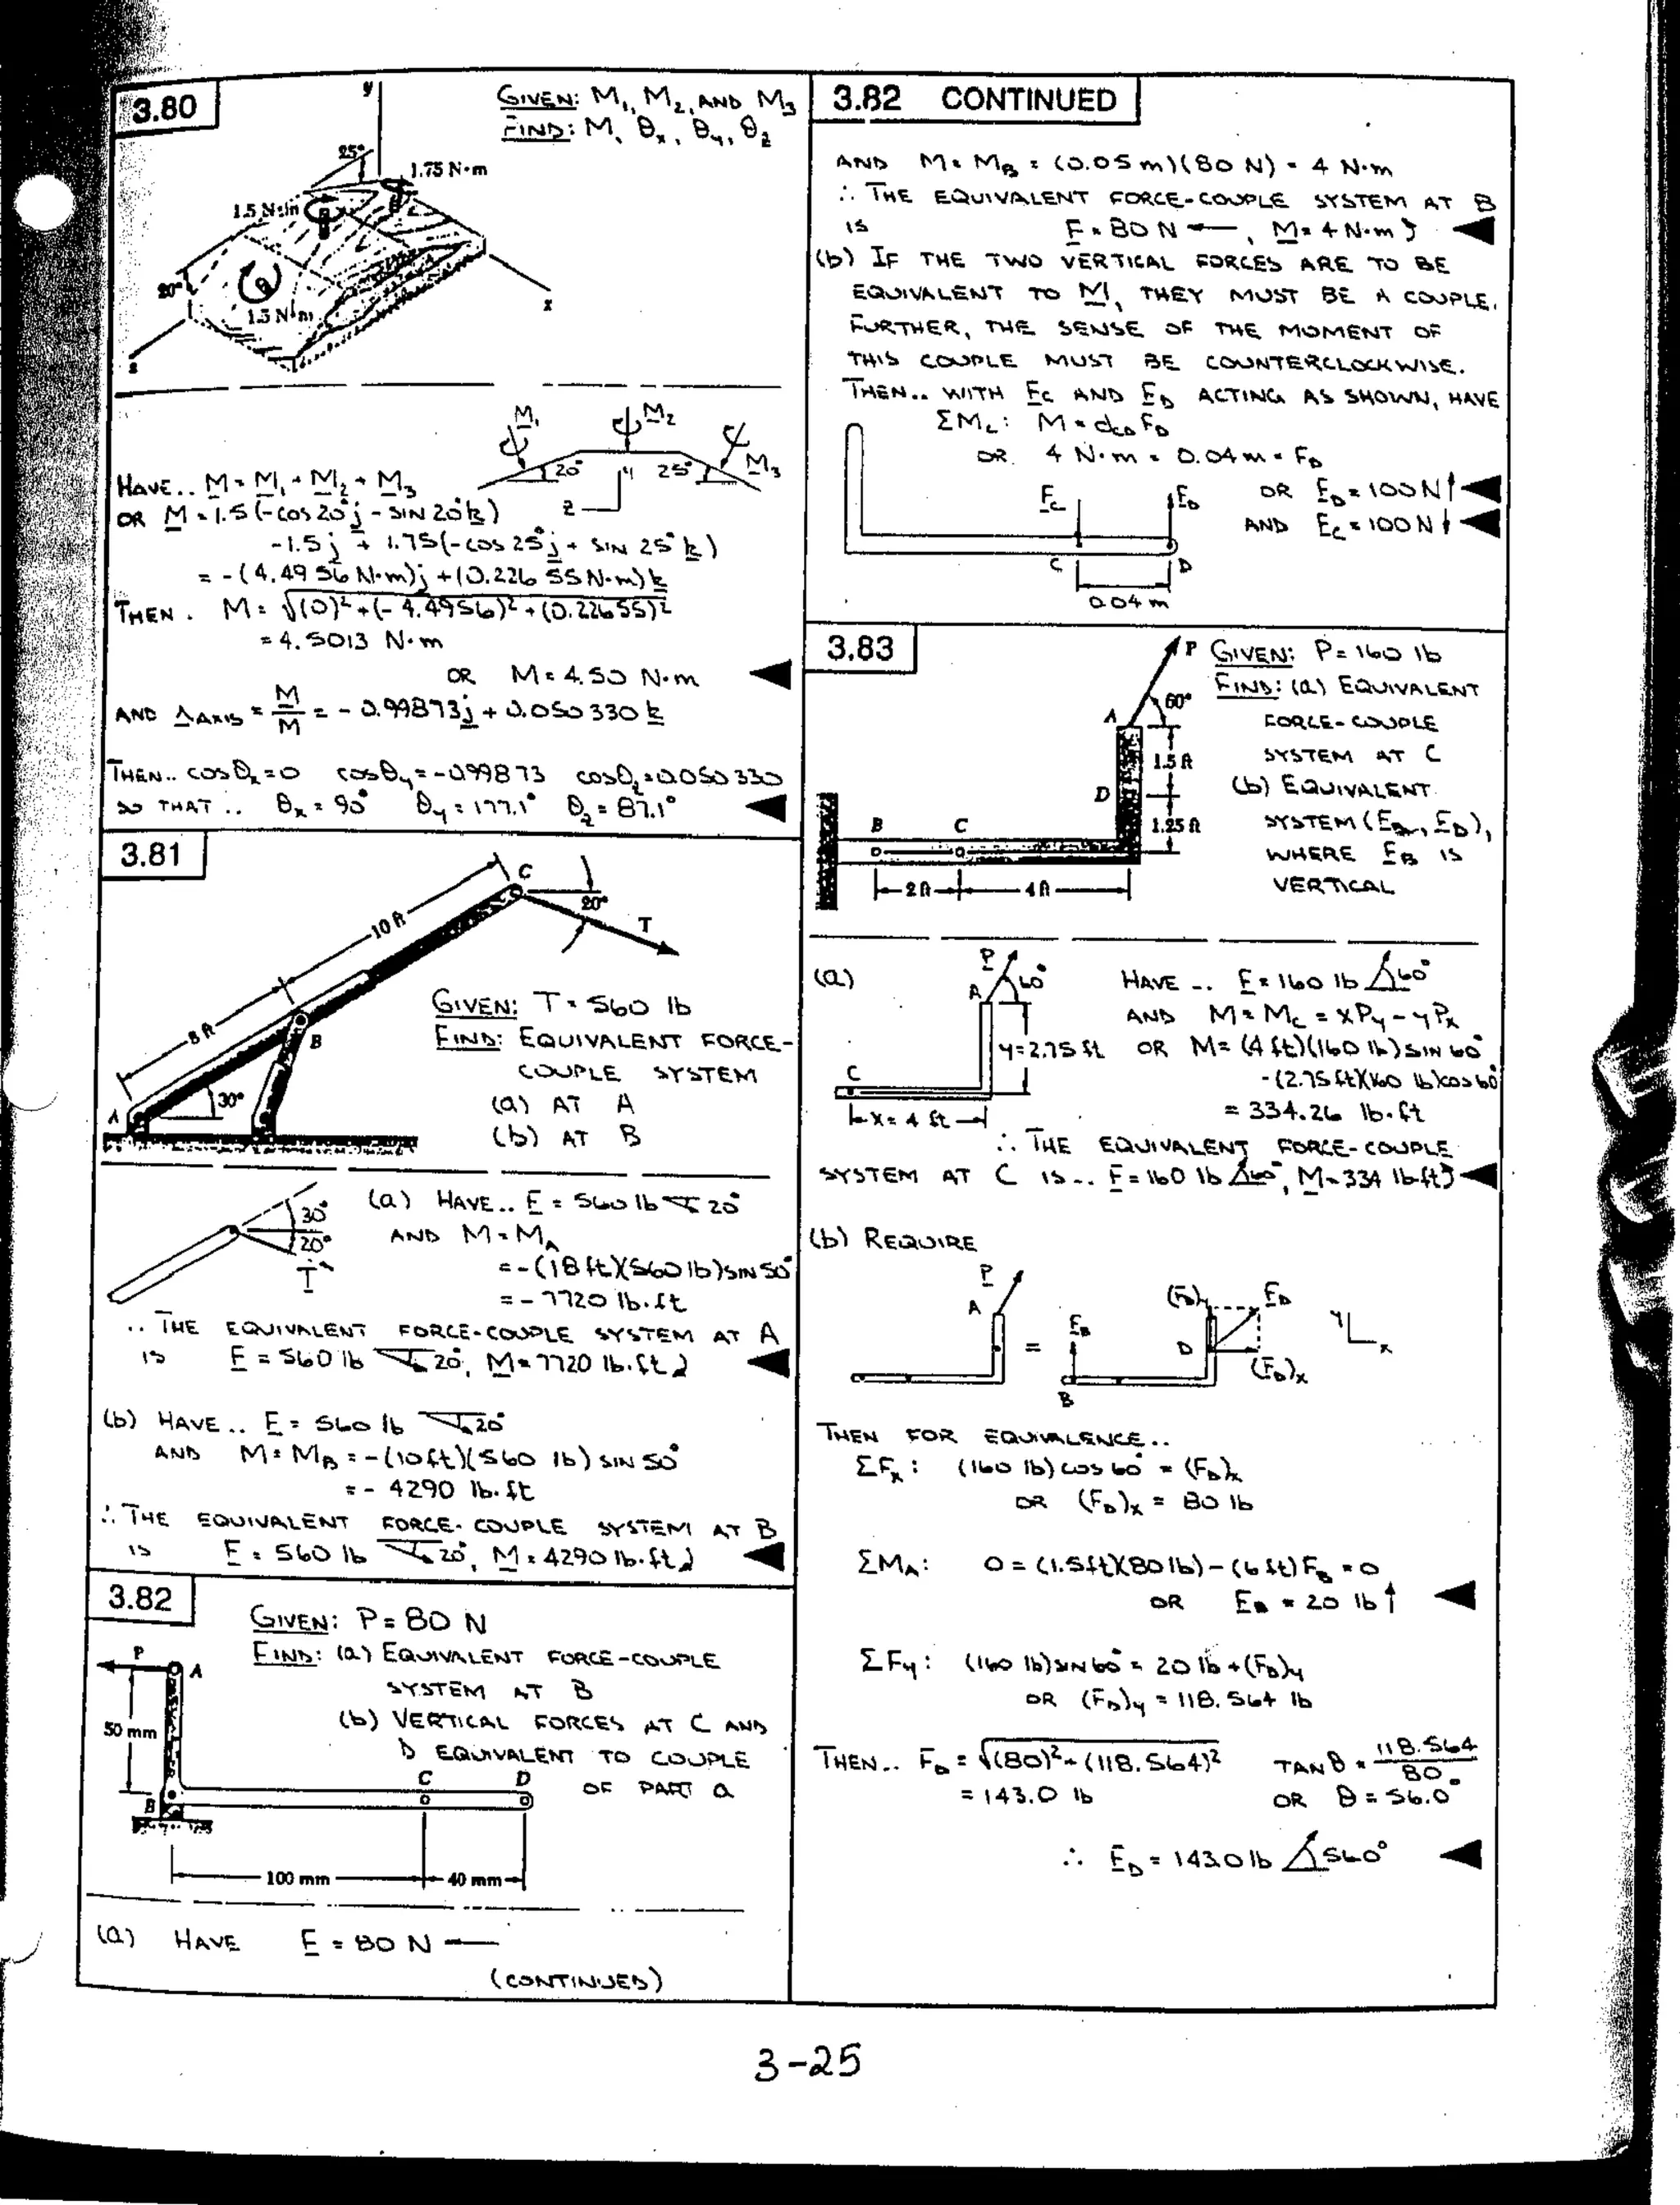 3.80
GIVEN: M₁, M₂, AND M₃
FIND: M, θₓ, θᵧ, θ_z
y
25°
1.75 N·m
1.5 N·m
20°
1.5 N·m
x
z
M₁
M₂
M₃
20°
y
25°
z
HAVE.. M = M₁ + M₂ + M₃
OR M = 1.5(-COS 20°j - SIN 20°k)
-1.5j + 1.75(-COS 25°j + SIN 25°k)
= -(4.4956 N·m)j + (0.22655 N·m)k
THEN. M = √(0)² + (-4.4956)² + (0.22655)²
= 4.5013 N·m
OR M = 4.50 N·m
AND λAXIS = M/M = -0.99873j + 0.050330k
THEN.. COSθₓ = 0 COSθᵧ = -0.99873 COSθ_z = 0.050330
SO THAT.. θₓ = 90° θᵧ = 177.1° θ_z = 87.1°
3.81
C
20°
T
10 ft
8 ft
B
30°
A
GIVEN: T = 560 lb
FIND: EQUIVALENT FORCE-
COUPLE SYSTEM
(a) AT A
(b) AT B
30°
20°
T
(a) HAVE.. F = 560 lb 20°
AND M = M_A
= -(18 ft)(560 lb) SIN 50°
= -7720 lb·ft
∴ THE EQUIVALENT FORCE-COUPLE SYSTEM AT A
IS F = 560 lb 20°, M = 7720 lb·ft ⤸
(b) HAVE.. F = 560 lb 20°
AND M = M_B = -(10 ft)(560 lb) SIN 50°
= -4290 lb·ft
∴ THE EQUIVALENT FORCE-COUPLE SYSTEM AT B
IS F = 560 lb 20°, M = 4290 lb·ft ⤸
3.82
GIVEN: P = 80 N
FIND: (a) EQUIVALENT FORCE-COUPLE
SYSTEM AT B
(b) VERTICAL FORCES AT C AND
D EQUIVALENT TO COUPLE
OF PART a
P
A
50 mm
B
C
D
100 mm
40 mm
(a) HAVE F = 80 N ←
(CONTINUED)
3.82 CONTINUED
AND M = M_B = (0.05 m)(80 N) = 4 N·m
∴ THE EQUIVALENT FORCE-COUPLE SYSTEM AT B
IS F = 80 N ←, M = 4 N·m ⤴
(b) IF THE TWO VERTICAL FORCES ARE TO BE
EQUIVALENT TO M, THEY MUST BE A COUPLE.
FURTHER, THE SENSE OF THE MOMENT OF
THIS COUPLE MUST BE COUNTERCLOCKWISE.
THEN.. WITH F_C AND F_D ACTING AS SHOWN, HAVE
ΣM_C: M = d_CD F_D
OR 4 N·m = 0.04 m × F_D
OR F_D = 100 N ↑
AND F_C = 100 N ↓
F_C
F_D
C
D
0.04 m
3.83
P
60°
A
1.5 ft
D
1.25 ft
B
C
2 ft
4 ft
GIVEN: P = 160 lb
FIND: (a) EQUIVALENT
FORCE-COUPLE
SYSTEM AT C
(b) EQUIVALENT
SYSTEM (F_B, F_D),
WHERE F_B IS
VERTICAL
(a)
P
A
60°
y = 2.75 ft
C
x = 4 ft
HAVE.. F = 160 lb ∠60°
AND M = M_C = xPᵧ - yPₓ
OR M = (4 ft)(160 lb) SIN 60°
-(2.75 ft)(160 lb) COS 60°
= 334.26 lb·ft
∴ THE EQUIVALENT FORCE-COUPLE
SYSTEM AT C IS.. F = 160 lb ∠60°, M = 334 lb·ft ⤴
(b) REQUIRE
P
A
=
F_B
B
(F_D)ᵧ
F_D
D
(F_D)ₓ
y
x
THEN FOR EQUIVALENCE..
ΣFₓ: (160 lb) COS 60° = (F_D)ₓ
OR (F_D)ₓ = 80 lb
ΣM_A: 0 = (1.5 ft)(80 lb) - (6 ft) F_B = 0
OR F_B = 20 lb ↑
ΣFᵧ: (160 lb) SIN 60° = 20 lb + (F_D)ᵧ
OR (F_D)ᵧ = 118.564 lb
THEN.. F_D = √(80)² + (118.564)² TAN θ = 118.564/80
= 143.0 lb OR θ = 56.0°
∴ F_D = 143.0 lb ∠56.0°
3-25